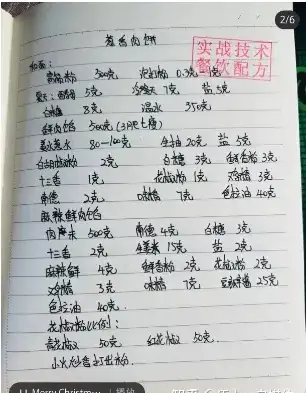 2/6
葱香肉饼
实战技术
餐饮配方
和面:
面粉 500克 泡打粉 0.3克
5克 冷 7克 盐 5克
白糖 8克 温水 350克
鲜肉馅 500克(3肥七瘦)
葱姜水 80-100克 生抽20克 盐 5克
白胡椒粉 2克 白糖 3克 鲜香粉 3克
十三香 1克 花椒粉 1克 鸡精 3克
2克 味精 7克 色拉油 40克
麻辣鲜肉馅
肉 500克 4克 白糖 3克
十三香 2克 15克 盐 2克
麻辣鲜 4克 鲜香粉 2克 花椒粉 2克
鸡精 3克 味精 7克 25克
色拉油 40克
花椒粉比例:
青花椒 50克 红花椒 50克
小火炒香打出粉.